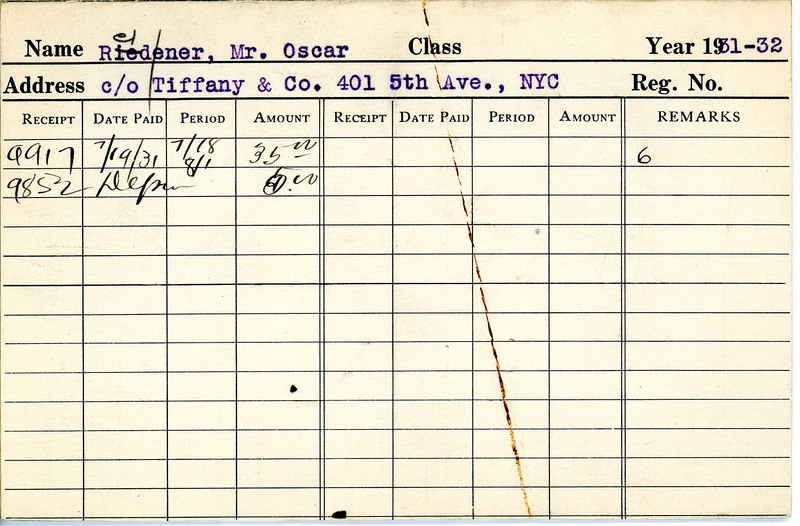 ei
Name Riedener, Mr. Oscar Class Year 1931-32
Address c/o Tiffany & Co. 401 5th Ave., NYC Reg. No.
RECEIPT DATE PAID PERIOD AMOUNT RECEIPT DATE PAID PERIOD AMOUNT REMARKS
9917 7/19/31 7/18 8/1 35.00 6
9852